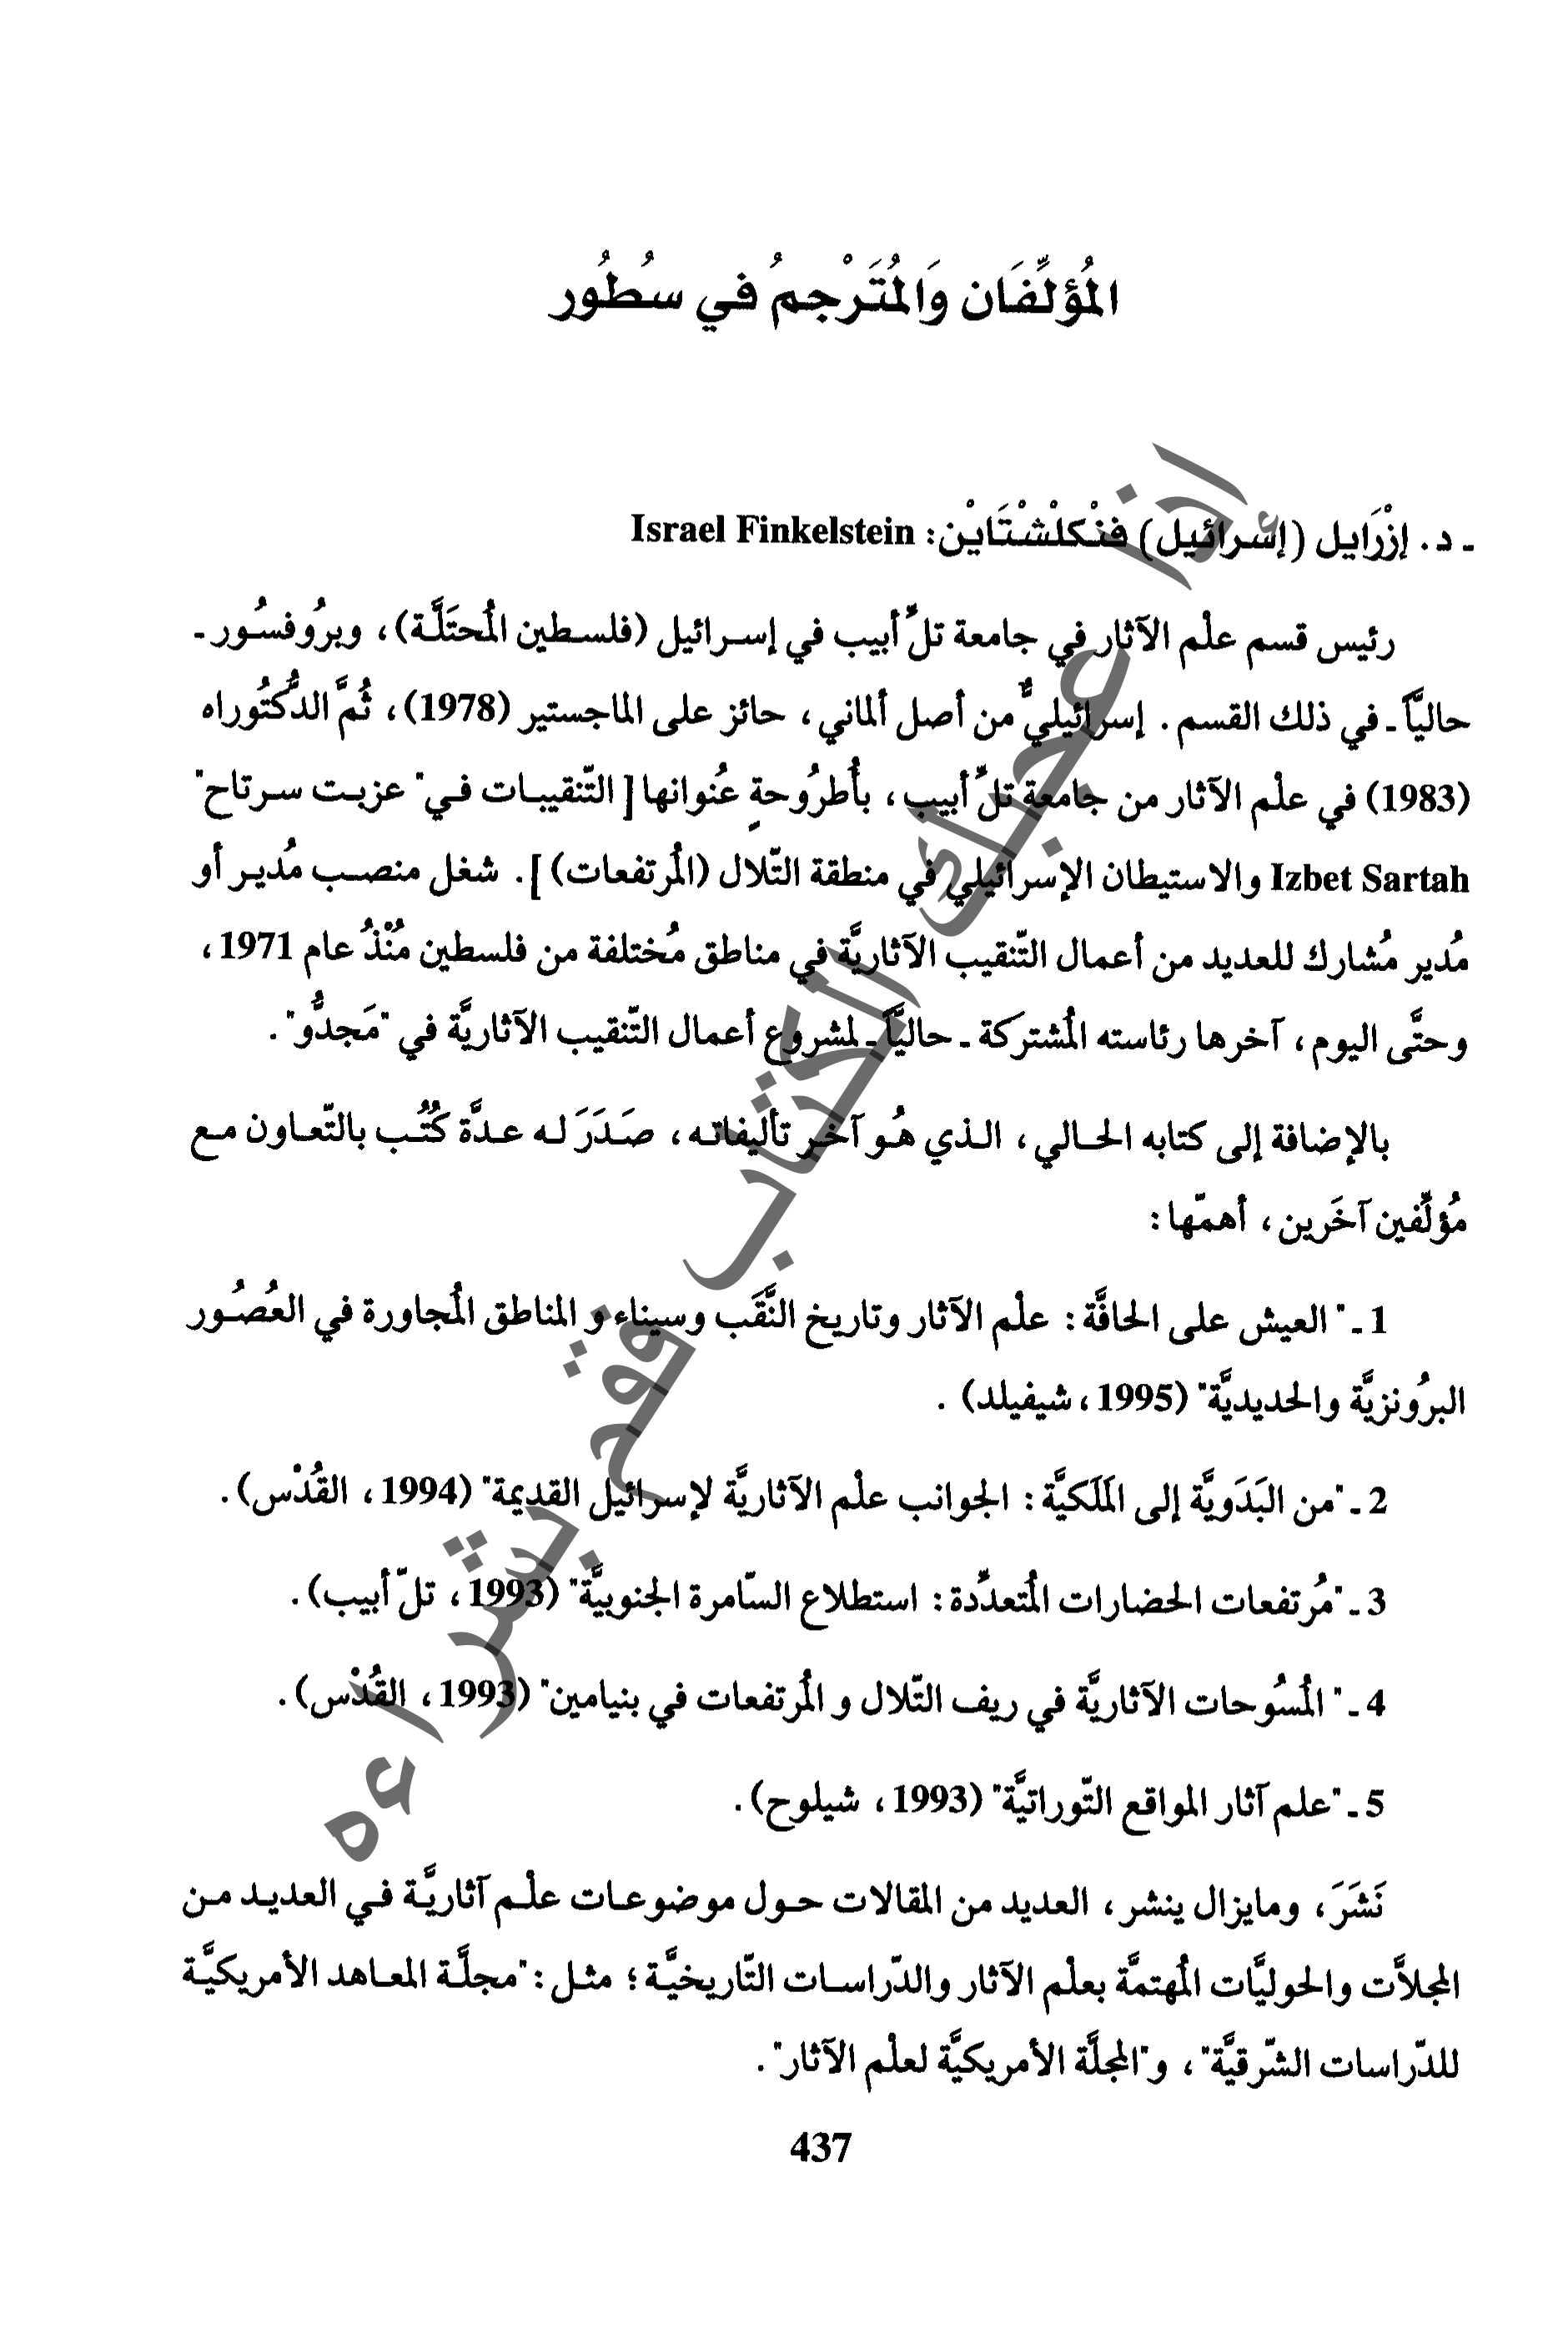 المُؤلِّفَان وَالمُتَرْجِمُ في سُطُور
ـ د. إزْرَايل (إسرائيل) فنْكلْشْتَايْن: Israel Finkelstein
رئيس قسم علْم الآثار في جامعة تلِّ أبيب في إسرائيل (فلسطين المُحتَلَّة)، وبرُوفسُور ـ
حاليَّاً ـ في ذلك القسم. إسرائيليٌّ من أصل ألماني، حائز على الماجستير (1978)، ثُمَّ الدُّكتُوراه
(1983) في علْم الآثار من جامعة تلِّ أبيب، بأُطرُوحةٍ عُنوانها [التّنقيبات في "عزبت سرتاح"
Izbet Sartah والاستيطان الإسرائيلي في منطقة التّلال (المُرتفعات)]. شغل منصب مُدير أو
مُدير مُشارك للعديد من أعمال التّنقيب الآثاريَّة في مناطق مُختلفة من فلسطين مُنْذُ عام 1971،
وحتَّى اليوم، آخرها رئاسته المُشتركة ـ حاليَّاً ـ لمشروع أعمال التّنقيب الآثاريَّة في "مَجدُّو".
بالإضافة إلى كتابه الحالي، الذي هُو آخر تأليفاته، صَدَرَ له عدَّة كُتُب بالتّعاون مع
مُؤلِّفين آخَرين، أهمّها:
1 ـ " العيش على الحافَّة: علْم الآثار وتاريخ النَّقَب وسيناء و المناطق المُجاورة في العُصُور
البرُونزيَّة والحديديَّة" (1995، شيفيلد) .
2 ـ "من البَدَويَّة إلى المَلَكيَّة: الجوانب علْم الآثاريَّة لإسرائيل القديمة" (1994، القُدْس).
3 ـ "مُرتفعات الحضارات المُتعدِّدة: استطلاع السّامرة الجنوبيَّة" (1993، تلّ أبيب).
4 ـ " المُسُوحات الآثاريَّة في ريف التّلال و المُرتفعات في بنيامين" (1993، القُدْس).
5 ـ "علم آثار المواقع التّوراتيَّة" (1993، شيلوح).
نَشَرَ، ومايزال ينشر، العديد من المقالات حول موضوعات علْم آثاريَّة في العديد من
المجلاَّت والحوليَّات المُهتمَّة بعلْم الآثار والدّراسات التّاريخيَّة؛ مثل: "مجلَّة المعاهد الأمريكيَّة
للدّراسات الشّرقيَّة"، و"المجلَّة الأمريكيَّة لعلْم الآثار".
437
إذا عجبك الكتاب قم بشراءه